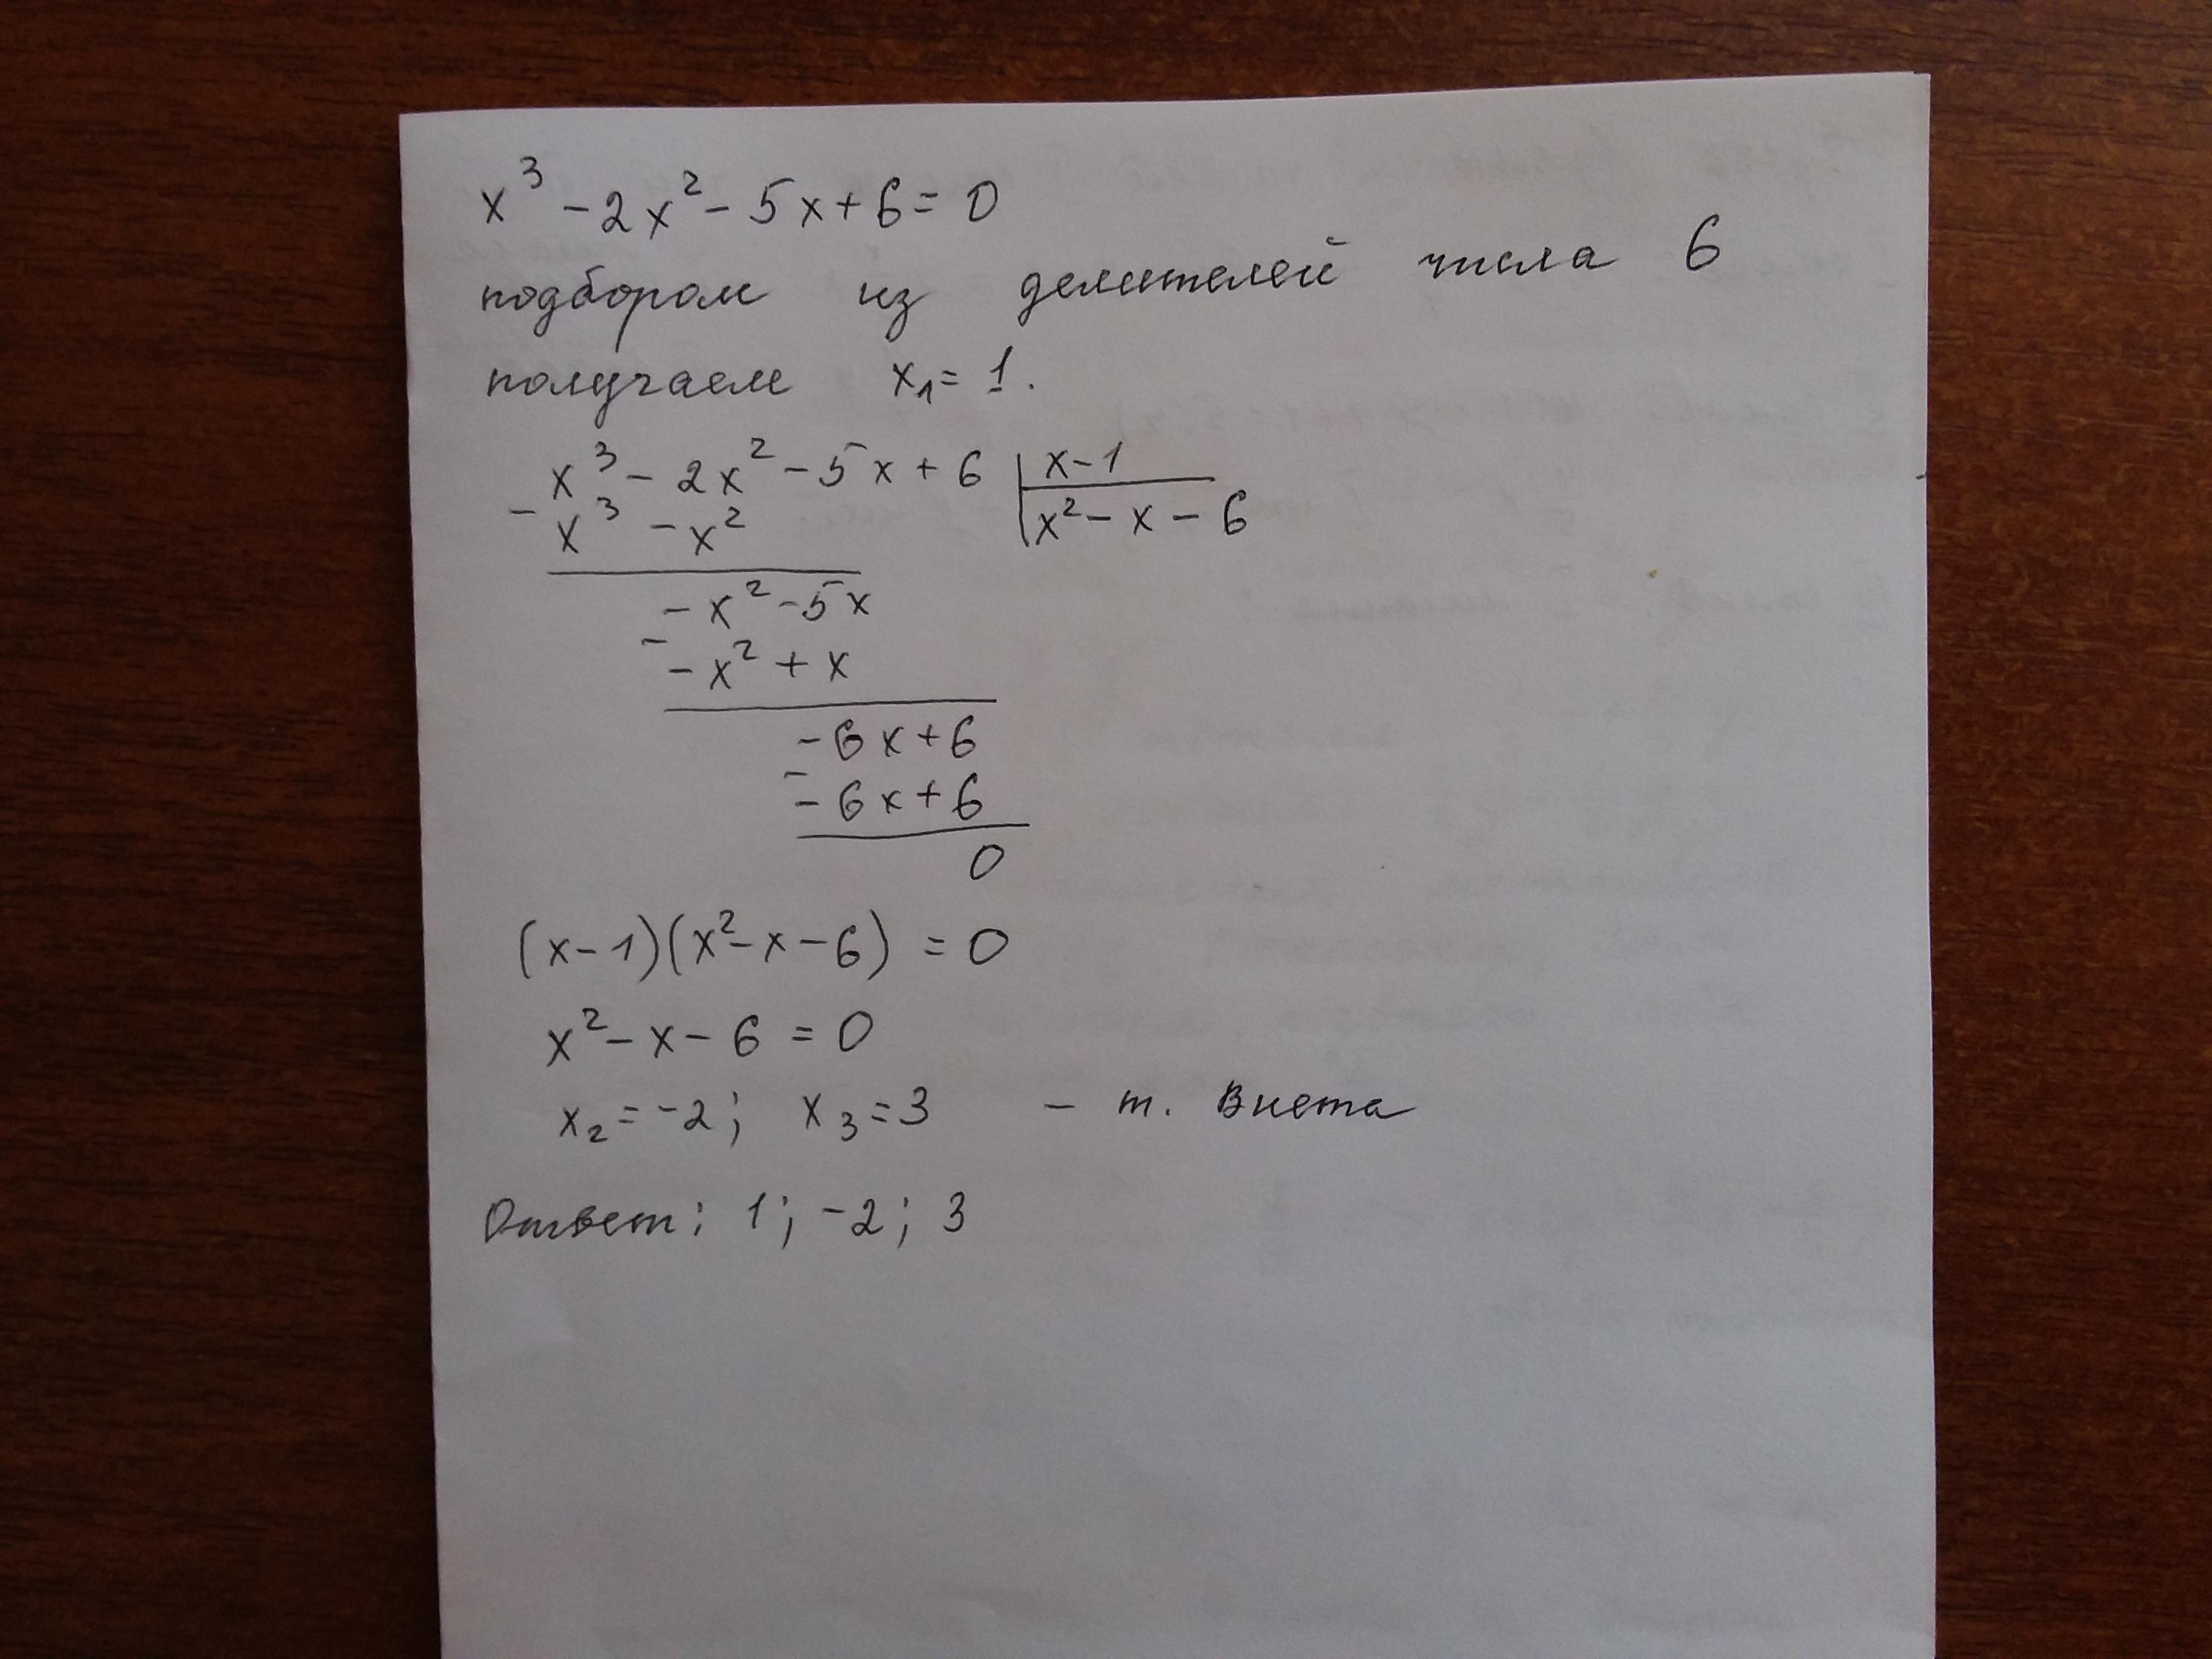 x³ - 2x² - 5x + 6 = 0
подбором из делителей числа 6
получаем x₁ = 1.
x³ - 2x² - 5x + 6 | x - 1
- x³ - x² | x² - x - 6
- x² - 5x
- - x² + x
- 6x + 6
- - 6x + 6
0
(x - 1)(x² - x - 6) = 0
x² - x - 6 = 0
x₂ = -2; x₃ = 3 - т. Виета
Ответ: 1; -2; 3